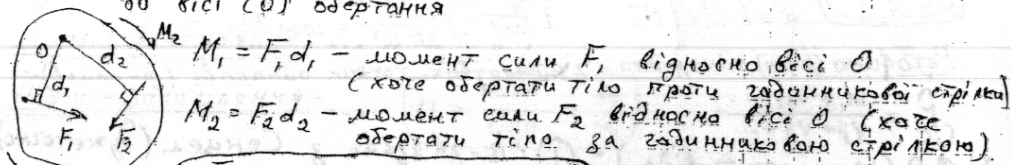 до вісі (О) обертання
O d₂ M₂
d₁
F₁ F₂
M₁ = F₁d₁ – момент сили F₁ відносно вісі О
(хоче обертати тіло проти годинникової стрілки)
M₂ = F₂d₂ – момент сили F₂ відносно вісі О (хоче
обертати тіло за годинниковою стрілкою)